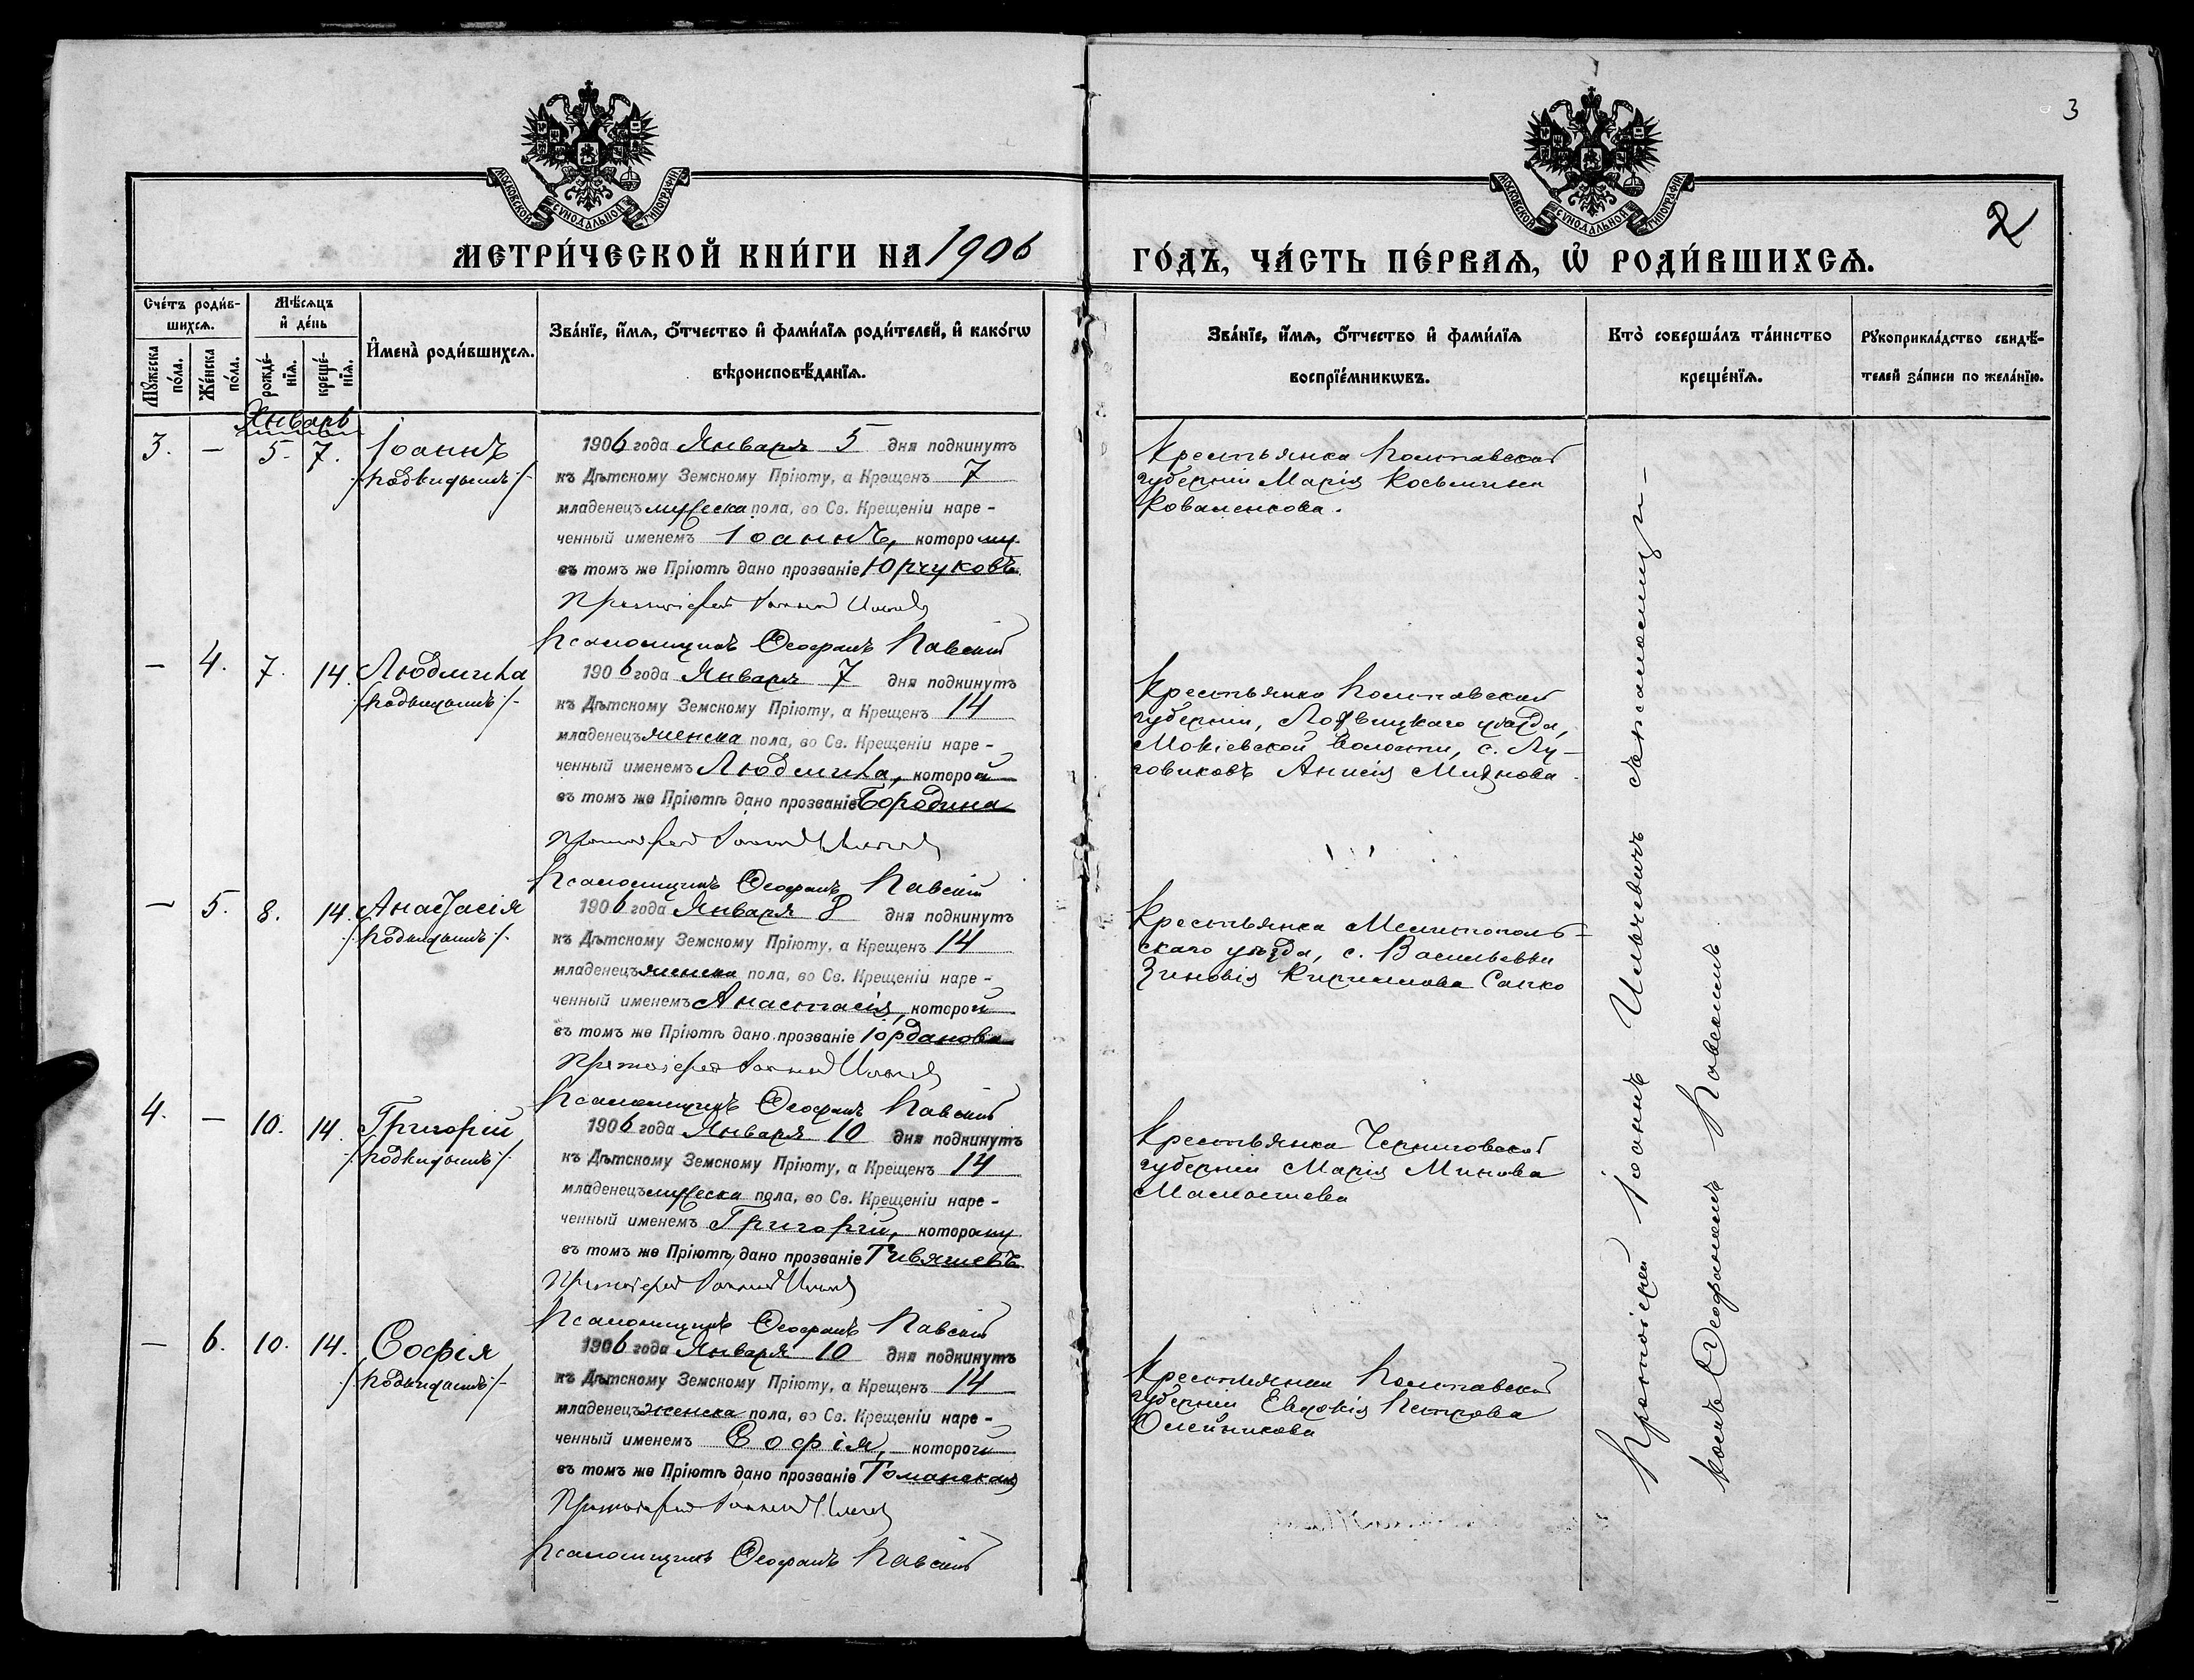 3
МОСКОВСКОЙ СѴНОДАЛЬНОЙ ТИПОГРАФІИ
МОСКОВСКОЙ СѴНОДАЛЬНОЙ ТИПОГРАФІИ
2
МЕТРИ́ЧЕСКОЙ КНИ́ГИ НА 1906
ГО́ДЪ, ЧА́СТЬ ПЕ́РВАѦ, Ѡ҆ РОДИ́ВШИХСѦ.
Сче́тъ роди́в-
шихсѧ.
Мꙋ́жеска по́ла.
Же́нска по́ла.
Мѣ́сѧцъ
и҆ де́нь
рожде́-нїѧ.
креще́-нїѧ.
И҆мена̀ роди́вшихсѧ.
Зва́нїе, и҆́мѧ, ѻ҆́тчество и҆ фами́лїѧ роди́телей, и҆ како́гѡ
вѣроисповѣ́данїѧ.
Зва́нїе, и҆́мѧ, ѻ҆́тчество и҆ фами́лїѧ
воспрїе́мникѡвъ.
Кто̀ соверша́лъ та́инство
креще́нїѧ.
Рꙋкоприкла́дство свидѣ́-
телей за́писи по жела́нїю.
Январь
3. — 5. 7. Іоаннъ
/подкидышъ/
1906 года Января 5 дня подкинутъ
къ Дѣтскому Земскому Пріюту, а Крещенъ 7
младенецъ мужеска пола, во Св. Крещеніи наре-
ченный именемъ Іоаннъ, которому
въ томъ же Пріютѣ дано прозваніе Юрчуковъ
Протоіерей Іоаннъ
Псаломщикъ Ѳеофанъ Павскій
Крестьянка Полтавской
губерніи Марія Косьмина
Коваленкова.
— 4. 7. 14. Людмила
/подкидышъ/
1906 года Января 7 дня подкинутъ
къ Дѣтскому Земскому Пріюту, а Крещенъ 14
младенецъ женска пола, во Св. Крещеніи наре-
ченный именемъ Людмила, которой
въ томъ же Пріютѣ дано прозваніе Бородина
Протоіерей Іоаннъ
Псаломщикъ Ѳеофанъ Павскій
Крестьянка Полтавской
губерніи, Лохвицкаго уѣзда,
Мокіевской волости, с. Лу-
говиковъ Анисія
— 5. 8. 14. Анастасія
/подкидышъ/
1906 года Января 8 дня подкинутъ
къ Дѣтскому Земскому Пріюту, а Крещенъ 14
младенецъ женска пола, во Св. Крещеніи наре-
ченный именемъ Анастасія, которой
въ томъ же Пріютѣ дано прозваніе Іорданова
Протоіерей Іоаннъ
Псаломщикъ Ѳеофанъ Павскій
Крестьянка Мелитополь-
скаго уѣзда, с. Васильевки
Зиновія Кириллова Сапко
4. — 10. 14. Григорій
/подкидышъ/
1906 года Января 10 дня подкинутъ
къ Дѣтскому Земскому Пріюту, а Крещенъ 14
младенецъ мужеска пола, во Св. Крещеніи наре-
ченный именемъ Григорій, которому
въ томъ же Пріютѣ дано прозваніе Тивяшевъ
Протоіерей Іоаннъ
Псаломщикъ Ѳеофанъ Павскій
Крестьянка Черниговской
губерніи Марія Минова
— 6. 10. 14. Софія
/подкидышъ/
1906 года Января 10 дня подкинутъ
къ Дѣтскому Земскому Пріюту, а Крещенъ 14
младенецъ женска пола, во Св. Крещеніи наре-
ченный именемъ Софія, которой
въ томъ же Пріютѣ дано прозваніе Томанская
Протоіерей Іоаннъ
Псаломщикъ Ѳеофанъ Павскій
Крестьянка Полтавской
губерніи Евдокія Петрова
Олейникова
Протоіерей Іоаннъ Ильичевичъ съ псаломщи-
комъ Ѳеофаномъ Павскимъ